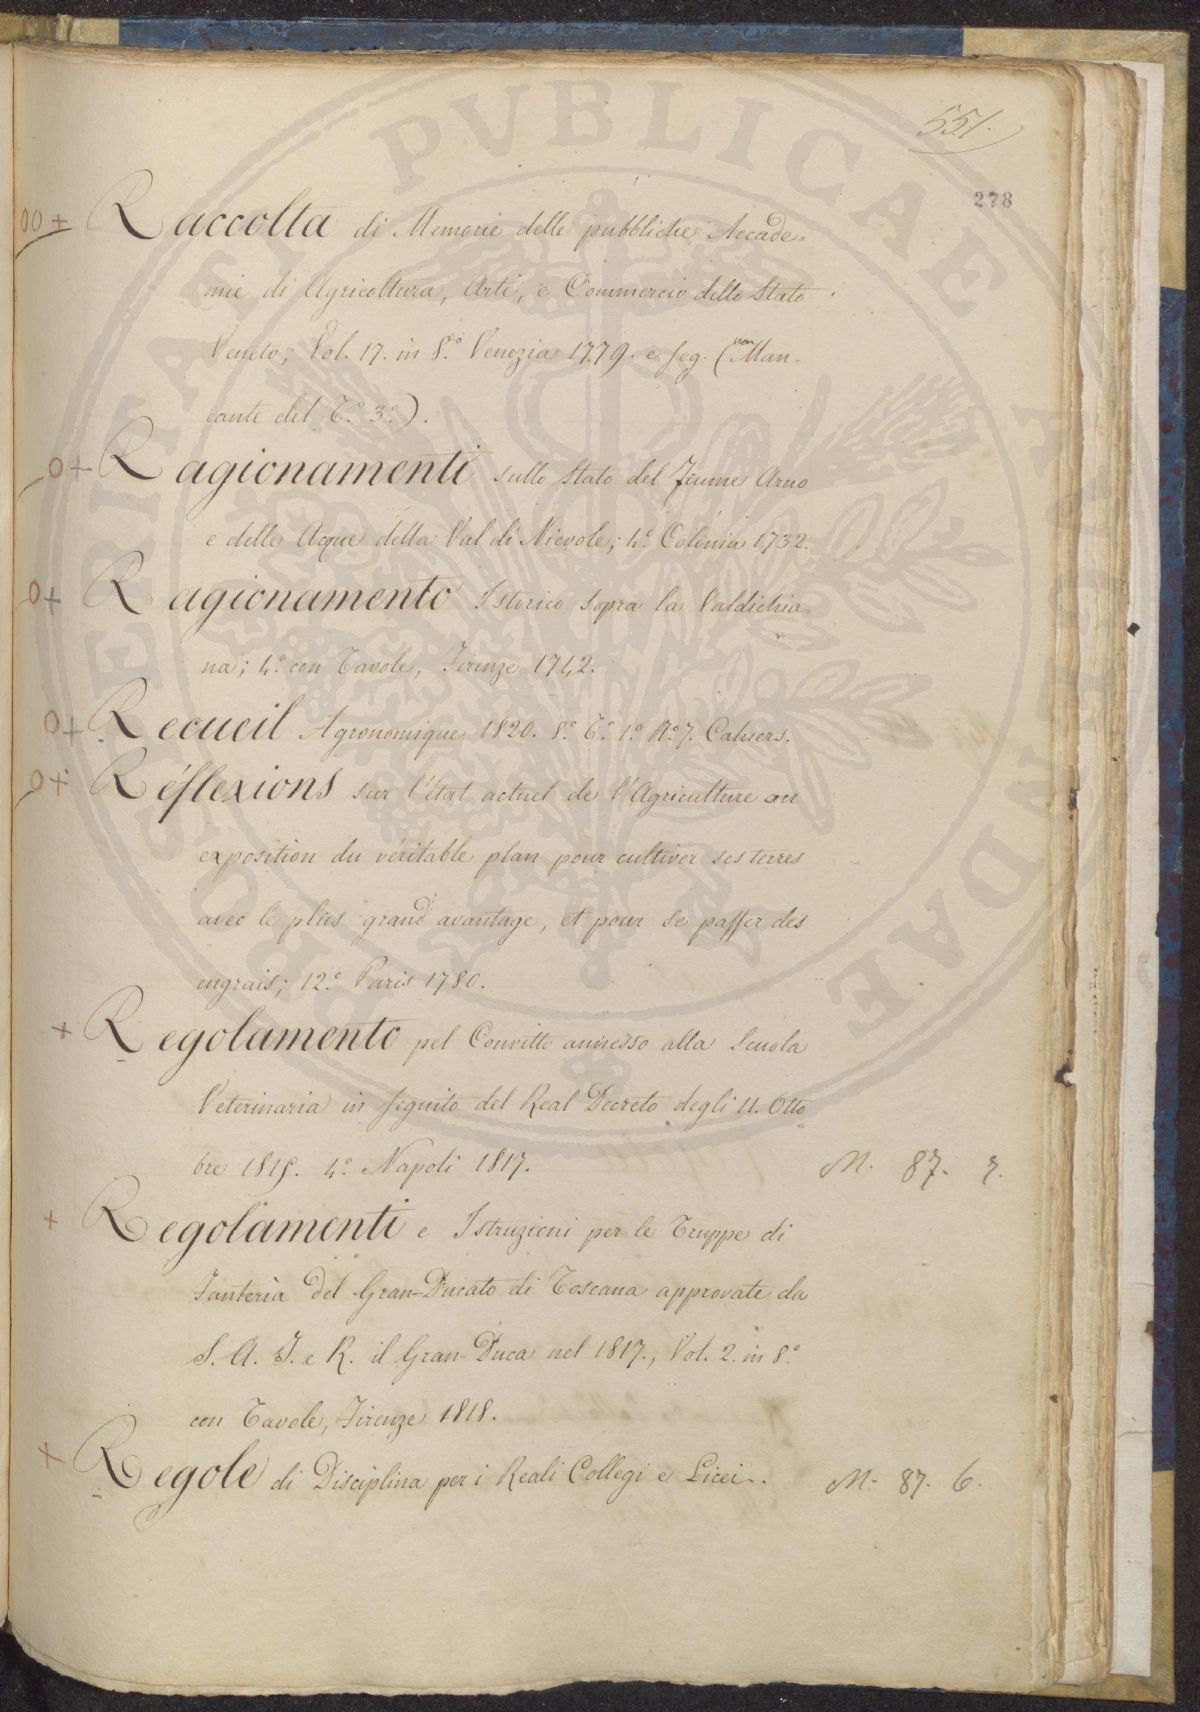 551.
278
00 + Raccolta di Memorie delle pubbliche Accade=
mie di Agricoltura, Arti, e Commercio dello Stato
Veneto; Vol. 17. in 8.º Venezia 1779. e seg. (non Man-
cante del T.º 3.º).
0+ Ragionamenti sullo Stato del Fiume Arno
e delle Acque della Val di Nievole; 4.º Colonia 1732.
0+ Ragionamento Istorico sopra la Valdichia=
na; 4.º con Tavole, Firenze 1742.
0+ Recueil Agronomique 1820. 8.º T.º 1.º N.º 7. Cahiers.
0+ Réflexions sur l'état actuel de l'Agriculture ou
exposition du véritable plan pour cultiver ses terres
avec le plus grand avantage, et pour se passer des
engrais; 12.º Paris 1780.
+ Regolamento pel Convitto annesso alla Scuola
Veterinaria in seguito del Real Decreto degli 11. Otto
bre 1815. 4.º Napoli 1817. M. 87. 7.
+ Regolamenti e Istruzioni per le Truppe di
Fanteria del Gran-Ducato di Toscana approvate da
S. A. I. e R. il Gran-Duca nel 1817., Vol. 2. in 8.º
con Tavole, Firenze 1818.
+ Regole di Disciplina per i Reali Collegi e Licei.. M. 87. 6.
PVBLICAE